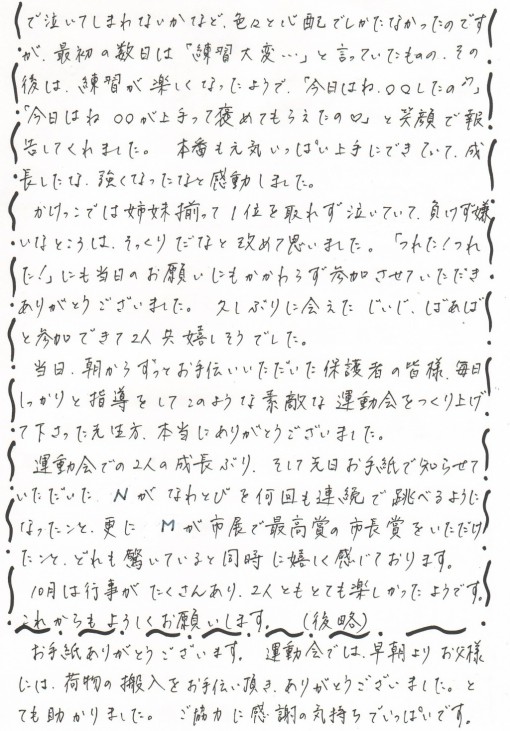 で泣いてしまわないかなど、色々と心配でしかたなかったのです
が、最初の数日は「練習大変…」と言っていたものの、その
後は、練習が楽しくなったようで、「今日はね、○○したの♡」
「今日はね ○○が上手って褒めてもらえたの♡」と笑顔で報
告してくれました。 本番も元気いっぱい上手にできていて、成
長したな、強くなったなと感動しました。
かけっこでは姉妹揃って1位を取れず泣いていて、負けず嫌
いなところは、そっくりだなと改めて思いました。「つれた!つれ
た!」にも当日のお願いにもかかわらず参加させていただき
ありがとうございました。 久しぶりに会えた じいじ、ばあば
と参加できて2人共嬉しそうでした。
当日、朝からずっとお手伝いいただいた保護者の皆様、毎日
しっかりと指導をしてこのような素敵な運動会をつくり上げ
て下さった先生方、本当にありがとうございました。
運動会での2人の成長ぶり、そして先日お手紙で知らせて
いただいた Nがなわとびを何回も連続で跳べるように
なったこと、更に Mが市展で最高賞の市長賞をいただけ
たこと、どれも驚いていると同時に嬉しく感じております。
10月は行事がたくさんあり、2人ともとても楽しかったようです。
これからもよろしくお願いします。 (後略)
お手紙ありがとうございます。 運動会では、早朝よりお父様
には、荷物の搬入をお手伝い頂き、ありがとうございました。と
ても助かりました。 ご協力に感謝の気持ちでいっぱいです。